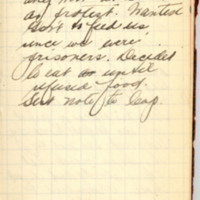 as protest. Wanted
Gov't to feed us,
since we were
prisoners. Decided
to eat so until
refused food.
Sent note to Emp.